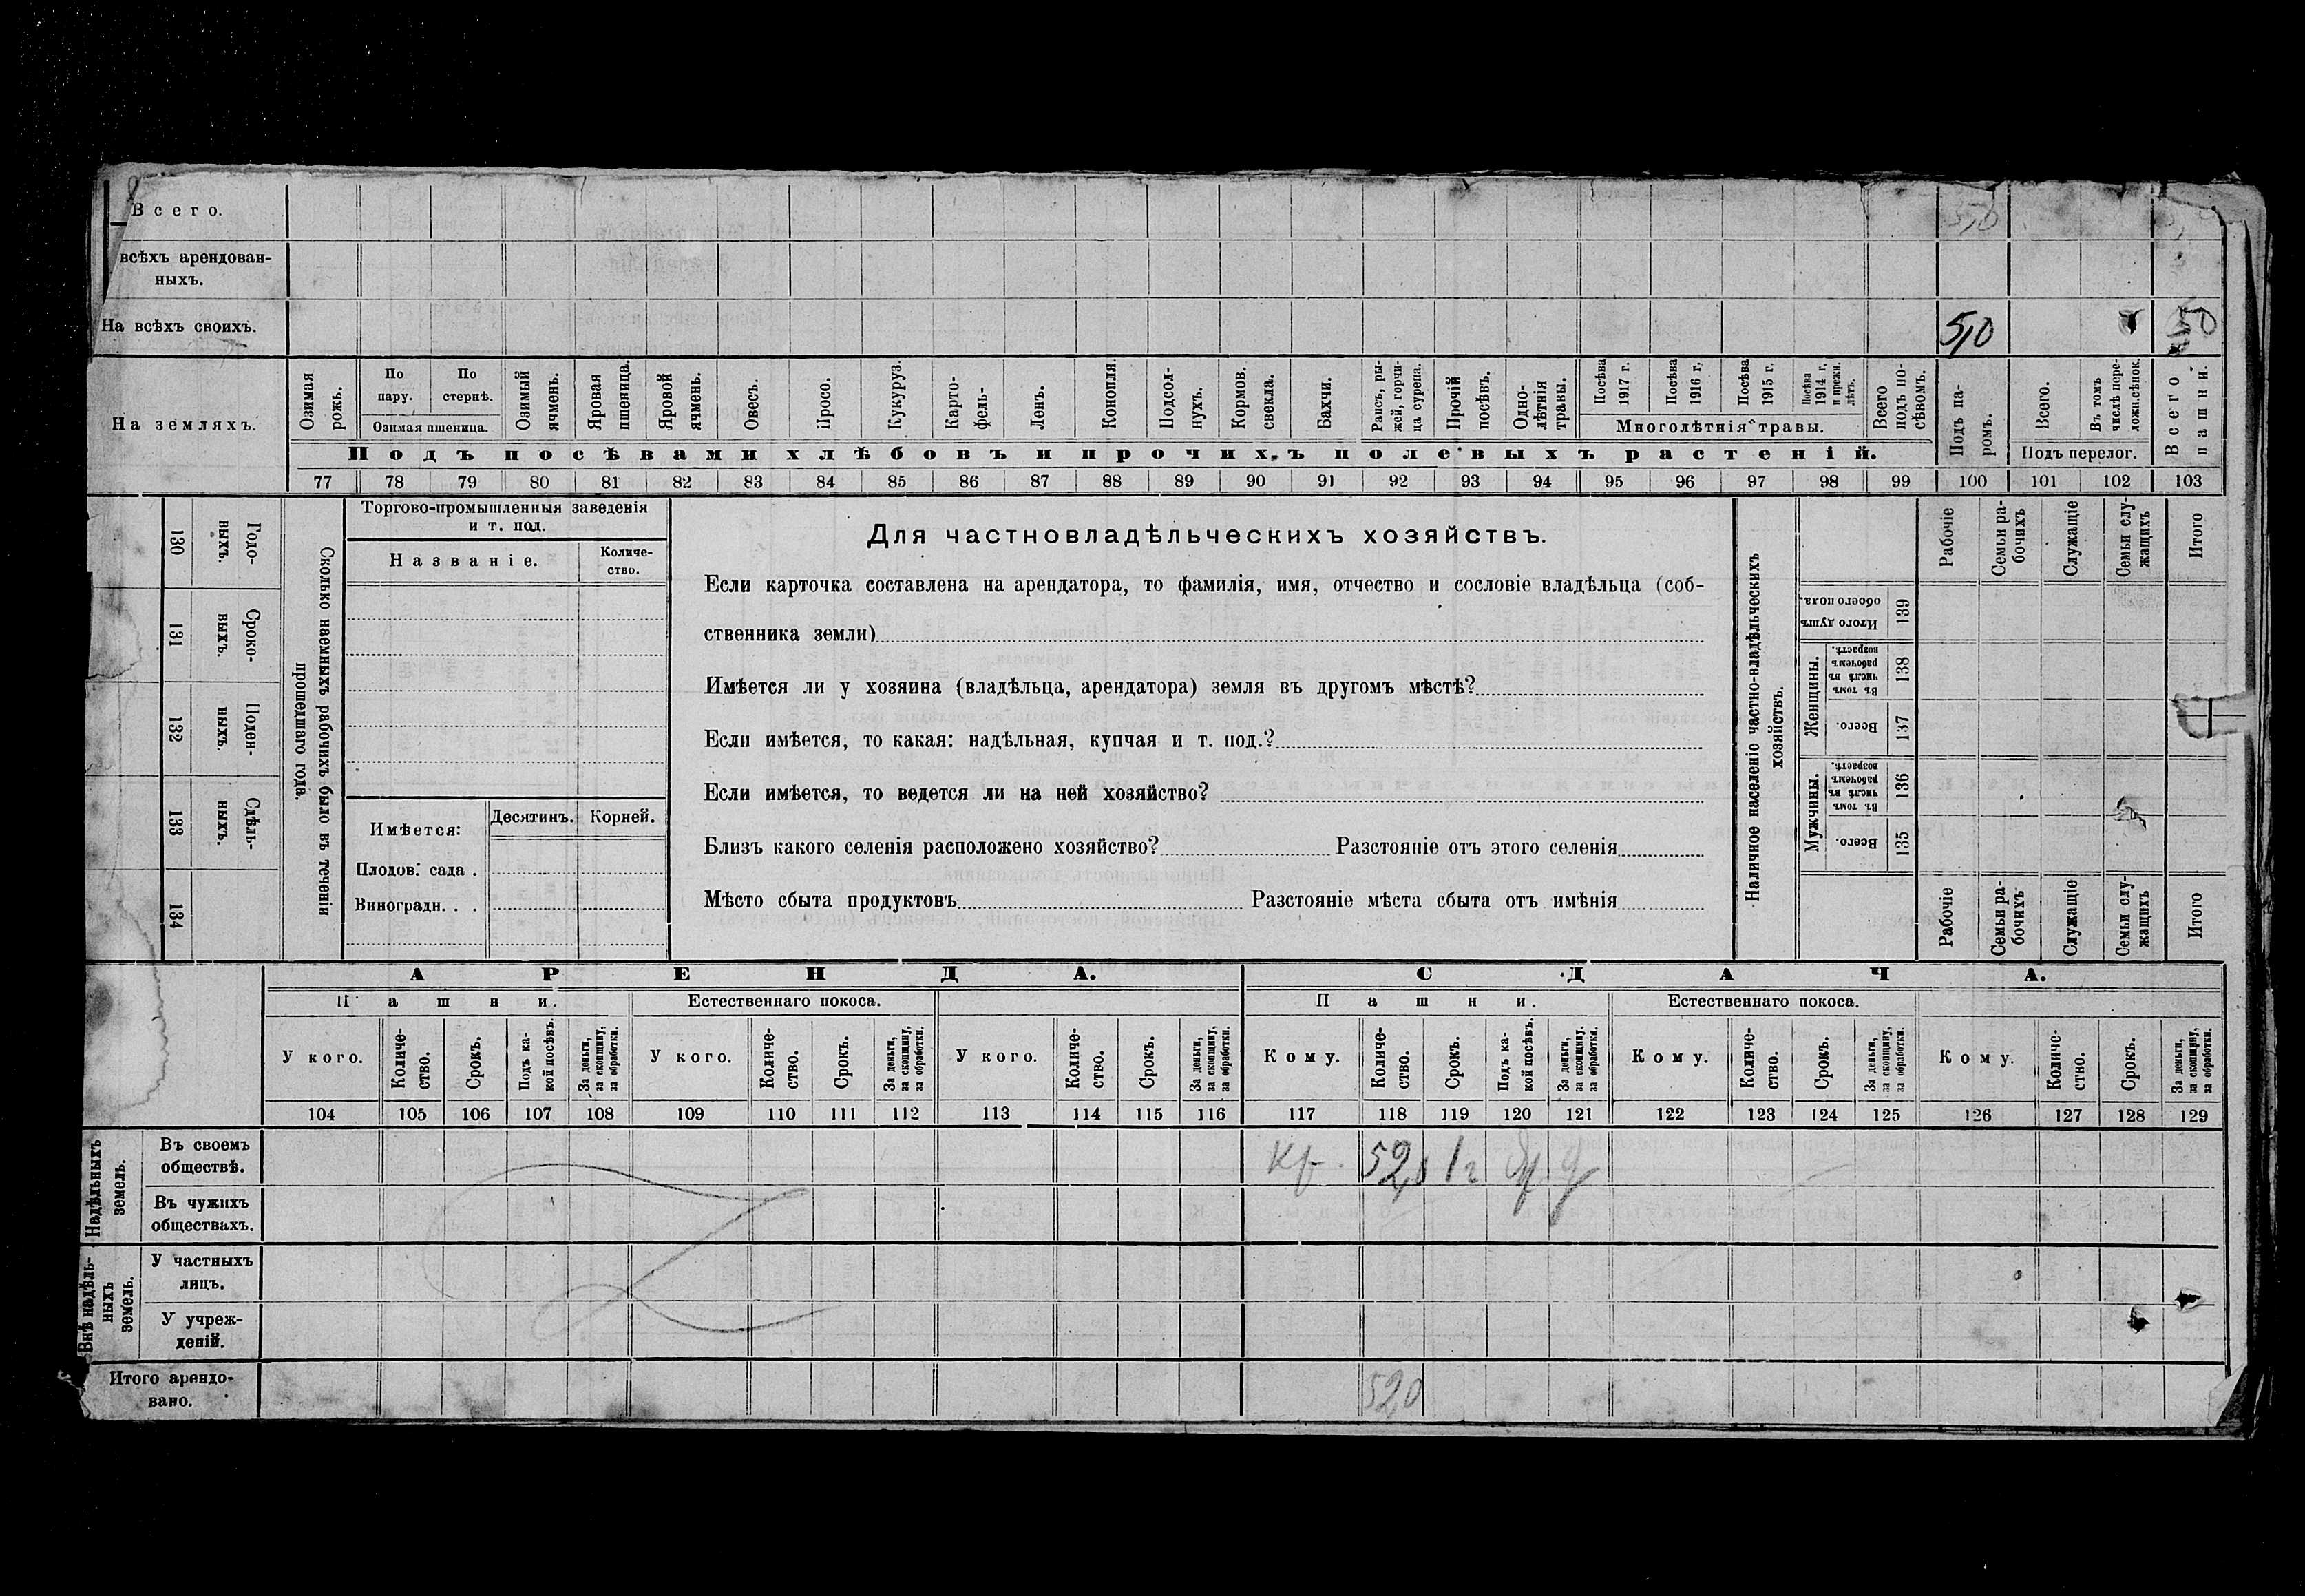 Всего. 5,0
всѣхъ арендован-
ныхъ.
На всѣхъ своихъ. 5,0 50
На земляхъ.
Озимая рожь.
По пару.
По стернѣ.
Озимая пшеница.
Озимый ячмень.
Яровая пшеница.
Яровой ячмень.
Овесъ.
Просо.
Кукуруз.
Карто-
фель-
Ленъ.
Конопля.
Подсол-
нухъ.
Кормов.
свекла.
Бахчи.
Рапсъ, ры-
жей, горчи-
ца сурепа.
Прочій
посѣвъ.
Одно-
лѣтнія
травы.
Посѣва
1917 г.
Посѣва
1916 г.
Посѣва
1915 г.
Посѣва
1914 г.
и прежн.
лѣтъ.
Многолѣтнія травы.
Всего
подъ по-
сѣвомъ.
Подъ па-
ромъ.
Всего.
Въ томъ
числѣ пере-
ложи.сѣнок.
Подъ перелог.
Всего
пашни.
Подъ посѣвами хлѣбовъ и прочихъ полевыхъ растеній.
77 78 79 80 81 82 83 84 85 86 87 88 89 90 91 92 93 94 95 96 97 98 99 100 101 102 103
130 Годо-
ныхъ.
131 Сроко-
ныхъ.
132 Поден-
ныхъ.
133 Сдѣль-
ныхъ.
134
Сколько наемныхъ рабочихъ было въ теченіи
прошедшаго года.
Торгово-промышленныя заведенія
и т. под.
Названіе.
Количе-
ство.
Имѣется:
Десятинъ. Корней.
Плодов. сада .
Виноградн. . .
Для частновладѣльческихъ хозяйствъ.
Если карточка составлена на арендатора, то фамилія, имя, отчество и сословіе владѣльца (соб-
ственника земли)
Имѣется ли у хозяина (владѣльца, арендатора) земля въ другомъ мѣстѣ?
Если имѣется, то какая: надѣльная, купчая и т. под.?
Если имѣется, то ведется ли на ней хозяйство?
Близъ какого селенія расположено хозяйство? Разстояніе отъ этого селенія
Мѣсто сбыта продуктовъ Разстояніе мѣста сбыта отъ имѣнія
Наличное населеніе частно-владѣльческихъ
хозяйствъ.
Рабочіе
Семьи ра-
бочихъ
Служащіе
Семьи слу-
жащихъ
Итого
Итого душъ
обоего пола.
139
Женщины.
Въ томъ
числѣ въ
рабочемъ
возрастѣ.
138
Всего.
137
Мужчины.
Въ томъ
числѣ въ
рабочемъ
возрастѣ.
136
Всего.
135
Рабочіе
Семьи ра-
бочихъ
Служащіе
Семьи слу-
жащихъ
Итого
АРЕНДА. СДАЧА.
Пашни. Естественнаго покоса. Пашни. Естественнаго покоса.
У кого.
Количе-
ство.
Срокъ.
Подъ ка-
кой посѣвъ.
За деньги,
за скопщину,
за обработки.
У кого.
Количе-
ство.
Срокъ.
За деньги,
за скопщину,
за обработки.
У кого.
Количе-
ство.
Срокъ.
За деньги,
за скопщину,
за обработки.
Кому.
Количе-
ство.
Срокъ.
Подъ ка-
кой посѣвъ.
За деньги,
за скопщину,
за обработки.
Кому.
Количе-
ство.
Срокъ.
За деньги,
за скопщину,
за обработки.
Кому.
Количе-
ство.
Срокъ.
За деньги,
за скопщину,
за обработки.
104 105 106 107 108 109 110 111 112 113 114 115 116 117 118 119 120 121 122 123 124 125 126 127 128 129
Надѣльныхъ
земель.
Въ своемъ
обществѣ.
кр. 52,0 1 г
Въ чужихъ
обществахъ.
Внѣ надѣль-
ныхъ
земель.
У частныхъ
лицъ.
У учреж-
деній.
Итого арендо-
вано.
520